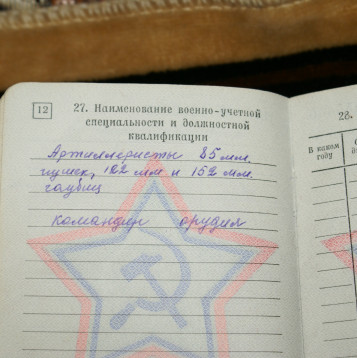 12
27. Наименование военно-учетной
специальности и должностной
квалификации
Артиллеристы 85 мм.
пушек, 122 мм и 152 мм.
гаубиц
командир орудия
28.
В каком
году